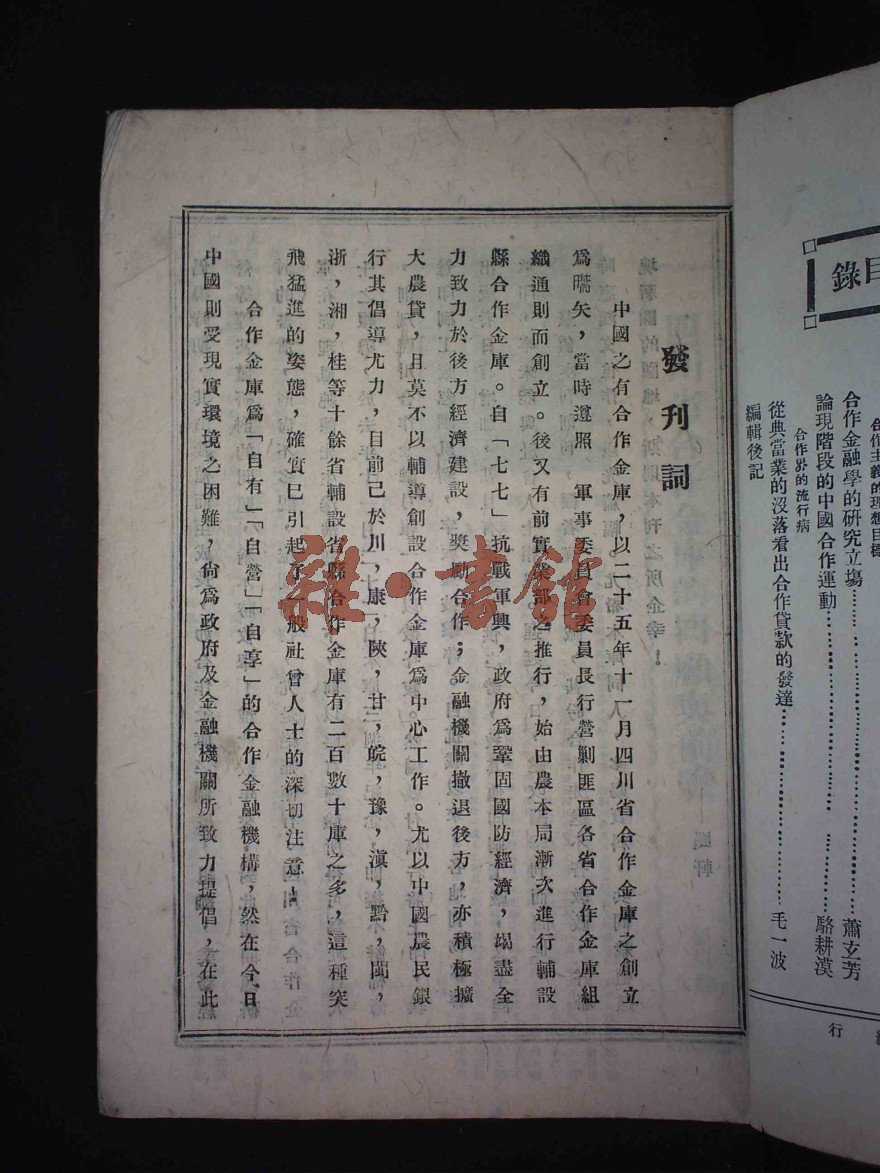 目錄
合作主義的理想目標
合作金融學的研究立場……………………蕭玄芳
論現階段的中國合作運動……………………駱耕漠
合作界的流行病
從典當業的沒落看出合作貸款的發達……………………毛一波
編輯後記
行
發刊詞
中國之有合作金庫，以二十五年十一月四川省合作金庫之創立
為嚆矢，當時遵照　軍事委員會委員長行營剿匪區各省合作金庫組
織通則而創立。後又有前實業部之推行，始由農本局漸次進行輔設
縣合作金庫。自「七七」抗戰軍興，政府為鞏固國防經濟，竭盡全
力致力於後方經濟建設，獎勵合作；金融機關撤退後方，亦積極擴
大農貸，且莫不以輔導創設合作金庫為中心工作。尤以中國農民銀
行其倡導尤力，目前已於川，康，陝，甘，皖，豫，滇，黔，閩，
浙，湘，桂等十餘省輔設省縣合作金庫有二百數十庫之多，這種突
飛猛進的姿態，確實已引起了一般社會人士的深切注意！
合作金庫為「自有」「自營」「自享」的合作金融機構，然在今日
中國則受現實環境之困難，尚為政府及金融機關所致力提倡，在此
雜·書館